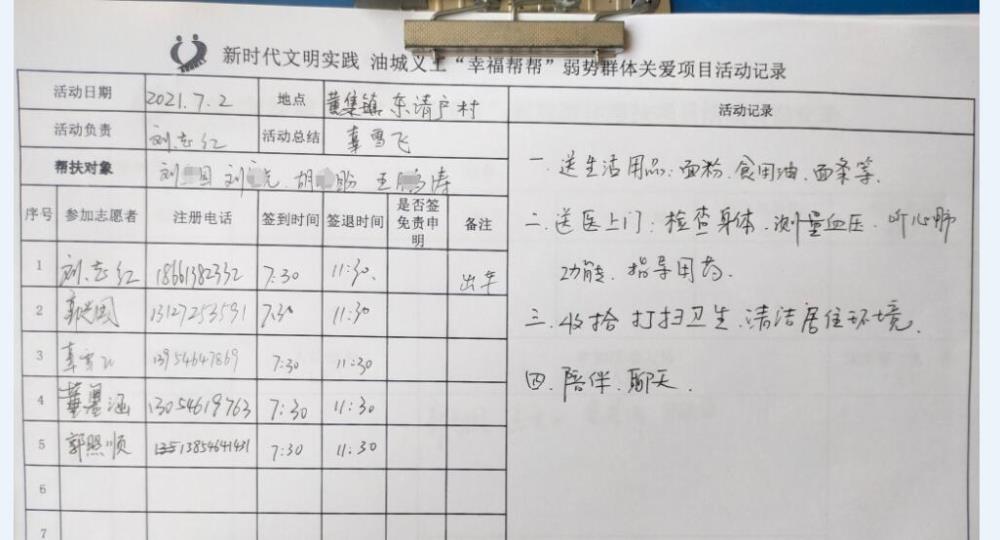 新时代文明实践 油城义工“幸福帮帮”弱势群体关爱项目活动记录
活动日期 2021.7.2 地点 董集镇东请户村
活动负责 刘志红 活动总结 辜雪飞
帮扶对象 刘 国 刘 元 胡 盼 王 涛
序号 参加志愿者 注册电话 签到时间 签退时间 是否签免责申明 备注
1 刘志红 18661382332 7:30 11:30 出车
2 13127253591 7:30 11:30
3 13954647869 7:30 11:30
4 董墨涵 13054619763 7:30 11:30
5 郭照顺 13854641431 7:30 11:30
6
7
活动记录
一.送生活用品:面粉.食用油.面条等.
二.送医上门:检查身体.测量血压.听心肺
功能.指导用药.
三.收拾打扫卫生.清洁居住环境.
四.陪伴.聊天.